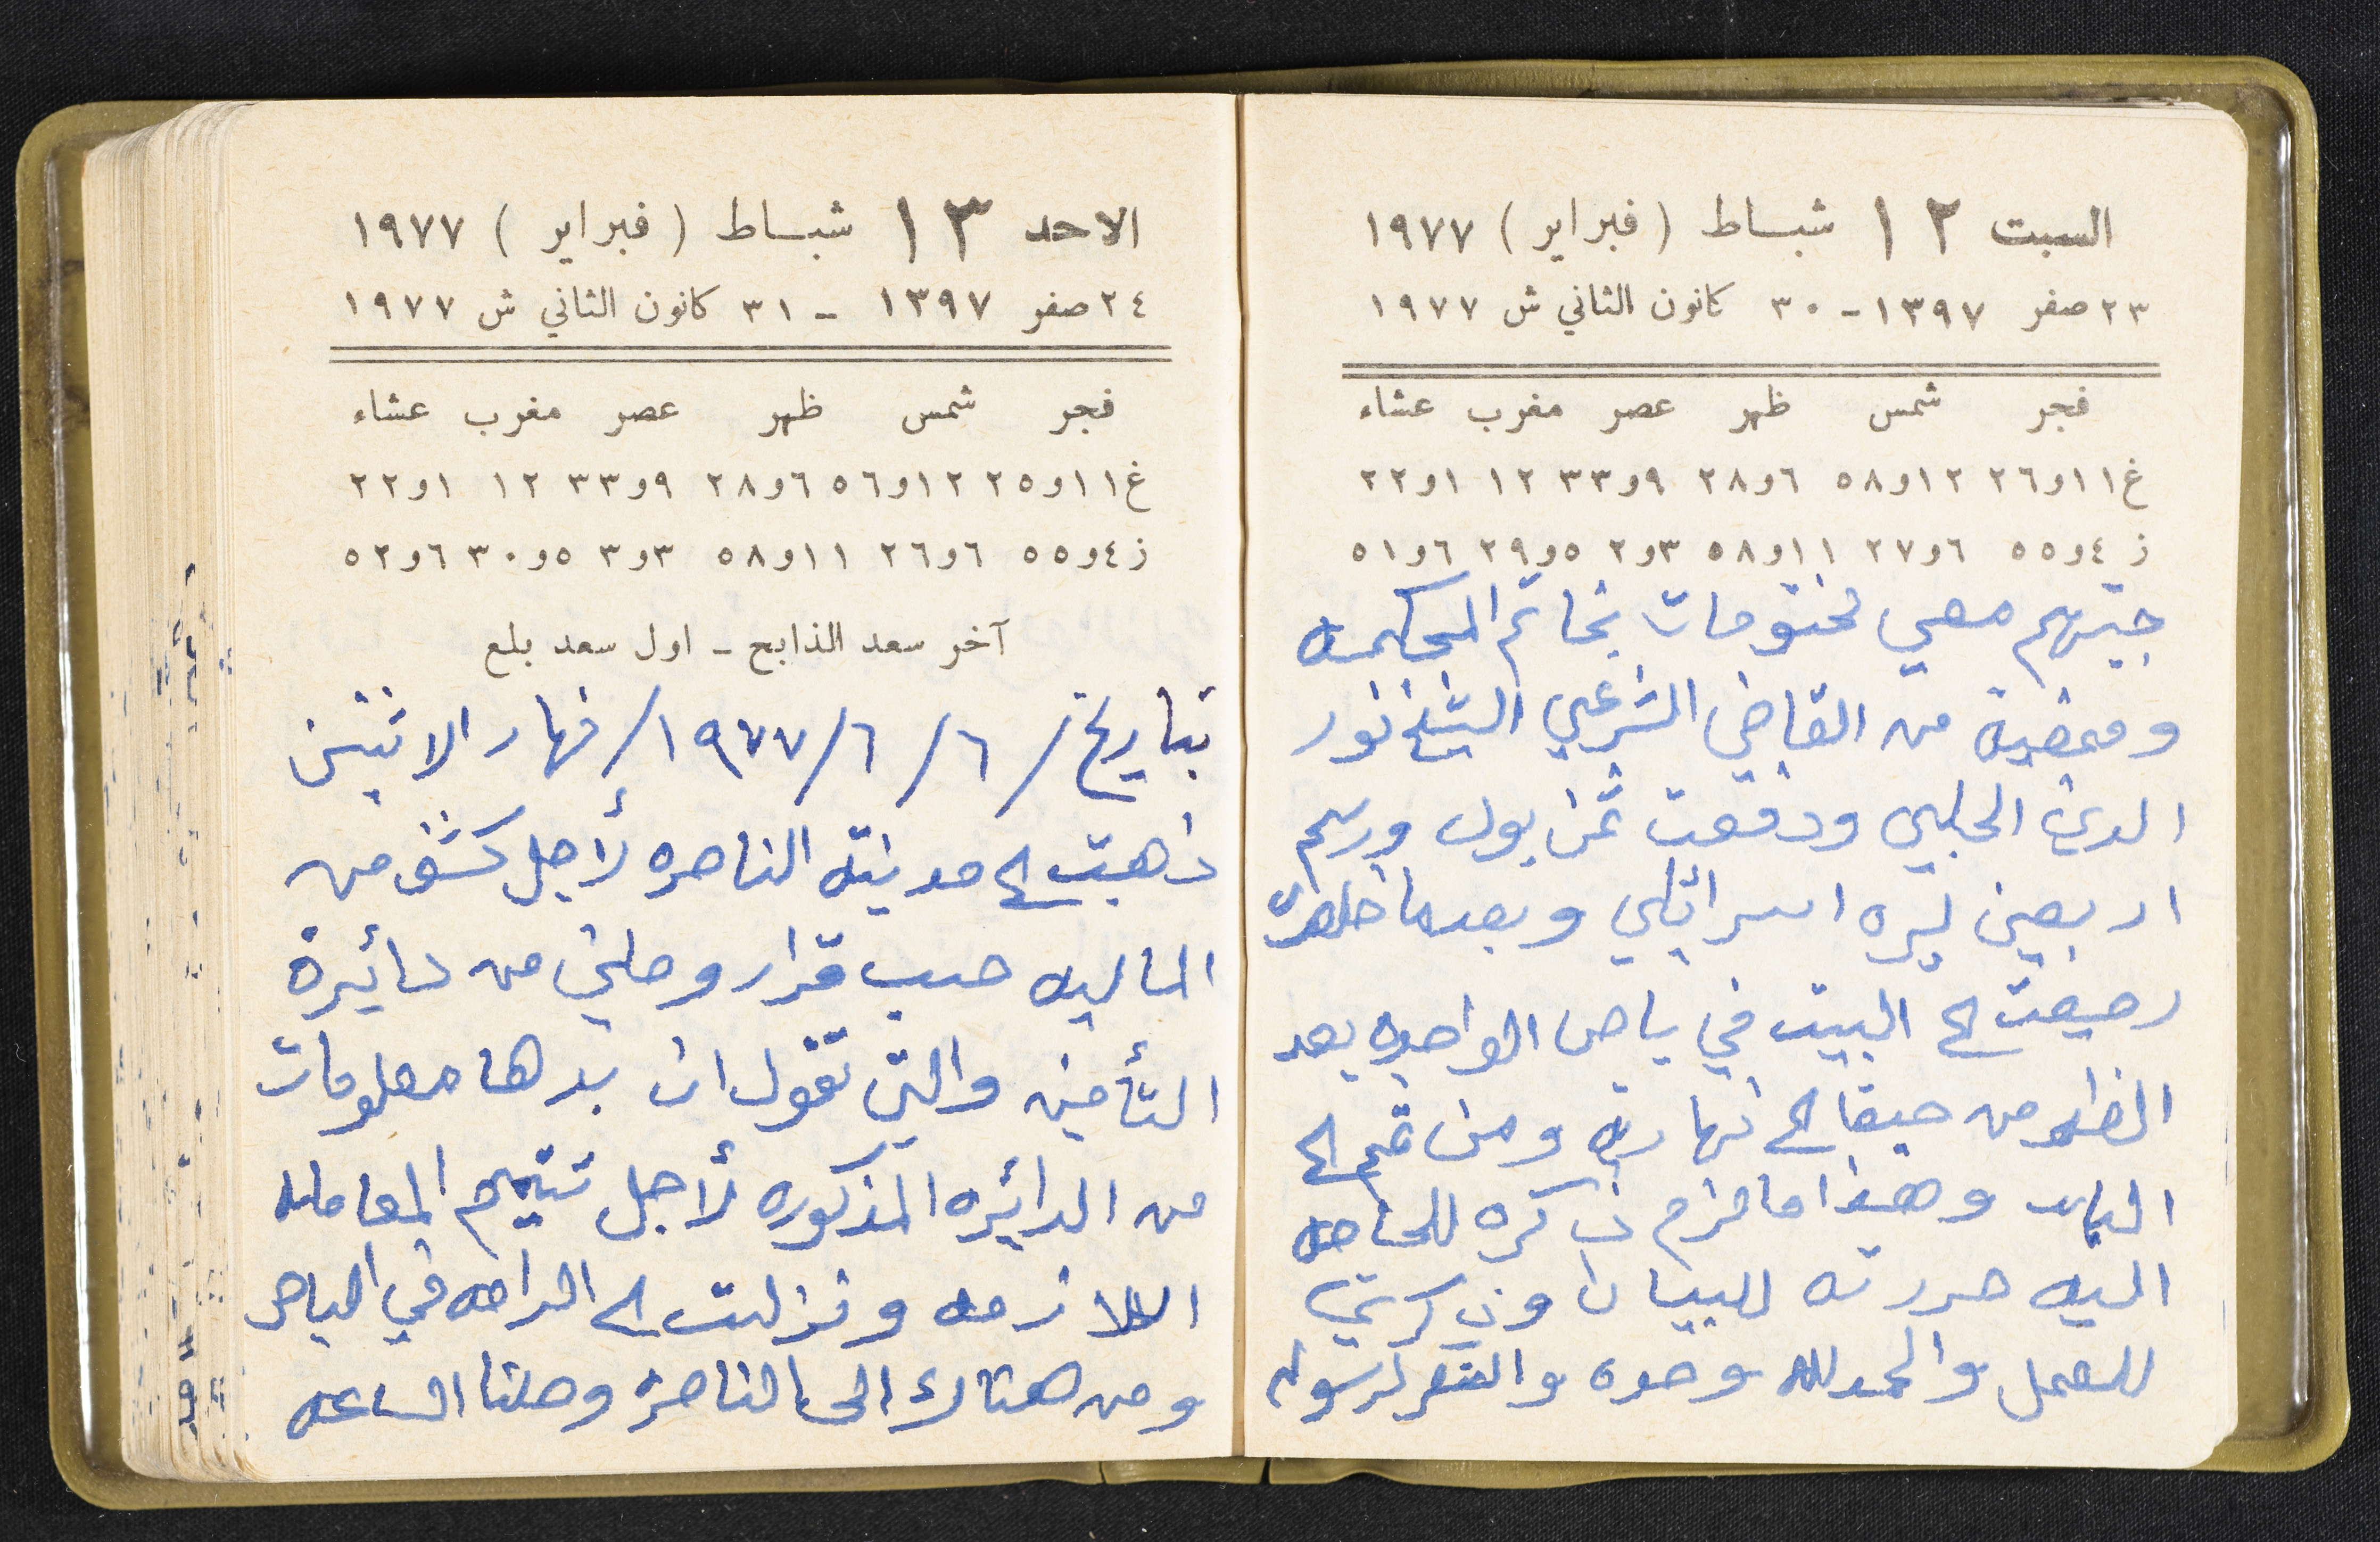 السبت ١٢ شباط (فبراير) ١٩٧٧
٢٣ صفر ١٣٩٧ - ٣٠ كانون الثاني ش ١٩٧٧
فجر شمس ظهر عصر مغرب عشاء
غ ١١و٢٦ ١٢و٥٨ ٦و٢٨ ٩و٣٣ ١٢ ١و٢٢
ز ٤و٥٥ ٦و٢٧ ١١و٥٨ ٣و٢ ٥و٢٩ ٦و٥١
جبتهم معي مختومات بخاتم المحكمه
وممضية من القاضي الشرعي الشيخ نور
الدين الحلبي ودفعت ثمن بول ورسم
اربعين ليره اسرائيلي وبعدما خلصت
رجعت الى البيت في باص الواحده بعد
الظهر من حيفا الى نهاريه ومن ثم الى
البلد وهذا ما لزم ذكره للحاجه
اليه حررته للبيان وذكرتي
للعمل والحمد لله وحده والشكر لرسوله
الاحد ١٣ شباط (فبراير) ١٩٧٧
٢٤ صفر ١٣٩٧ - ٣١ كانون الثاني ش ١٩٧٧
فجر شمس ظهر عصر مغرب عشاء
غ ١١و٢٥ ١٢و٥٦ ٦و٢٨ ٩و٣٣ ١٢ ١و٢٢
ز ٤و٥٥ ٦و٢٦ ١١و٥٨ ٣و٣ ٥و٣٠ ٦و٥٢
آخر سعد الذابح - اول سعد بلع
بتاريخ / ٦ / ٦ / ١٩٧٧ / نهار الاثنين
ذهبت الى مدينة الناصره لأجل كشف من
الماليه حسب قرار وصلني من دائيرة
التأمين والتي تقول ان بدها معلومات
من الدائيره المذكوره لأجل تتيم المعامله
اللازمه ونزلت الى الرامه في الباص
ومن هناك الى الناصرة وصلنا الساعه